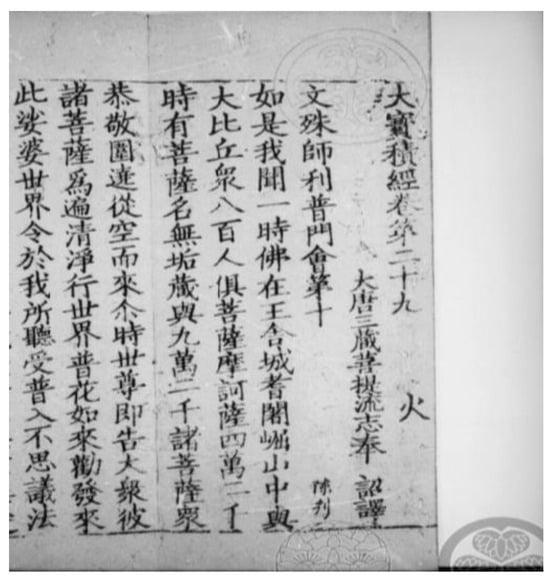 大寳積經卷第二十九 火
大唐三藏菩提流志奉 詔譯
文殊師利普門會第十 陳刋
如是我聞一時佛在王舎城耆闍崛山中與
大比丘衆八百人俱菩薩摩訶薩四萬二千
時有菩薩名無垢藏與九萬二千諸菩薩衆
恭敬圍遶從空而來尒時世尊即告大衆彼
諸菩薩爲遍清淨行世界普花如來勸發來
此娑婆世界令於我所聽受普入不思議法